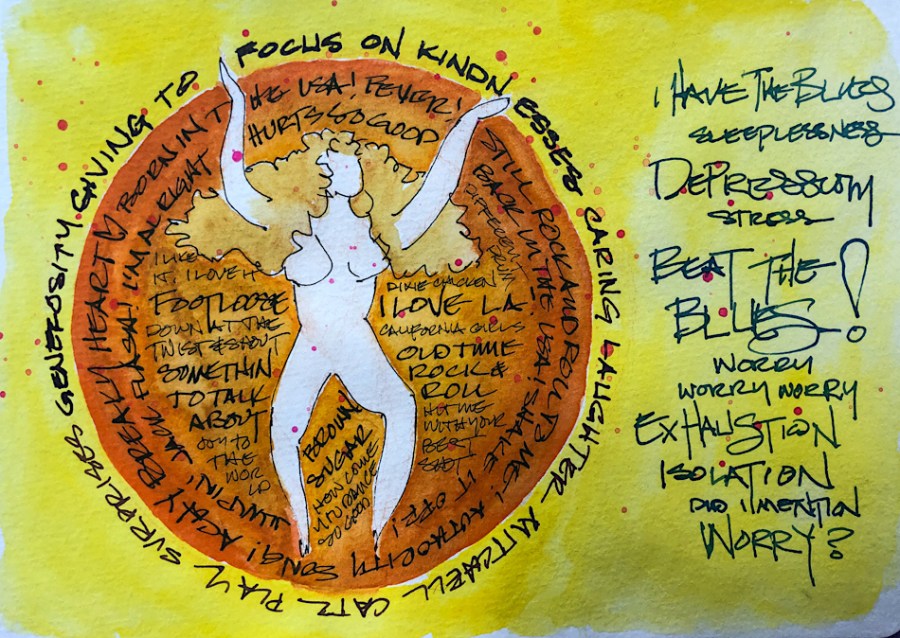 FOCUS ON KINDNESSES CARING LAUGHTER MITCHELL CATZ PLAY SURPRISES GENEROSITY GIVING TO
ACHY BREAKY HEART BORN IN THE USA! FEVER!
STILL ROCK AND ROLL TO ME! AUTHORITY SONG!
JUMPIN' JACK FLASH! I'M ALRIGHT
HURTS SO GOOD
BACK IN THE USA! SHAKE IT OFF!
DIFFERENT
I LIKE
IT, I LOVE IT
FOOTLOOSE
DOWN AT THE
TWIST & SHOUT
SOMETHIN
TO TALK
ABOUT
JOY TO
THE
WOR
LD
BROWN
SUGAR
HOW COME
U
DANCE
SO GOOD
DIXIE CHICKEN
I LOVE LA
CALIFORNIA GIRLS
OLD TIME
ROCK &
ROLL
HIT ME
WITH YOUR
BEST
SHOT!
I HAVE THE BLUES
SLEEPLESSNESS
DEPRESSION
STRESS
BEAT THE
BLUES!
WORRY
WORRY WORRY
EXHAUSTION
ISOLATION
DID I MENTION
WORRY?